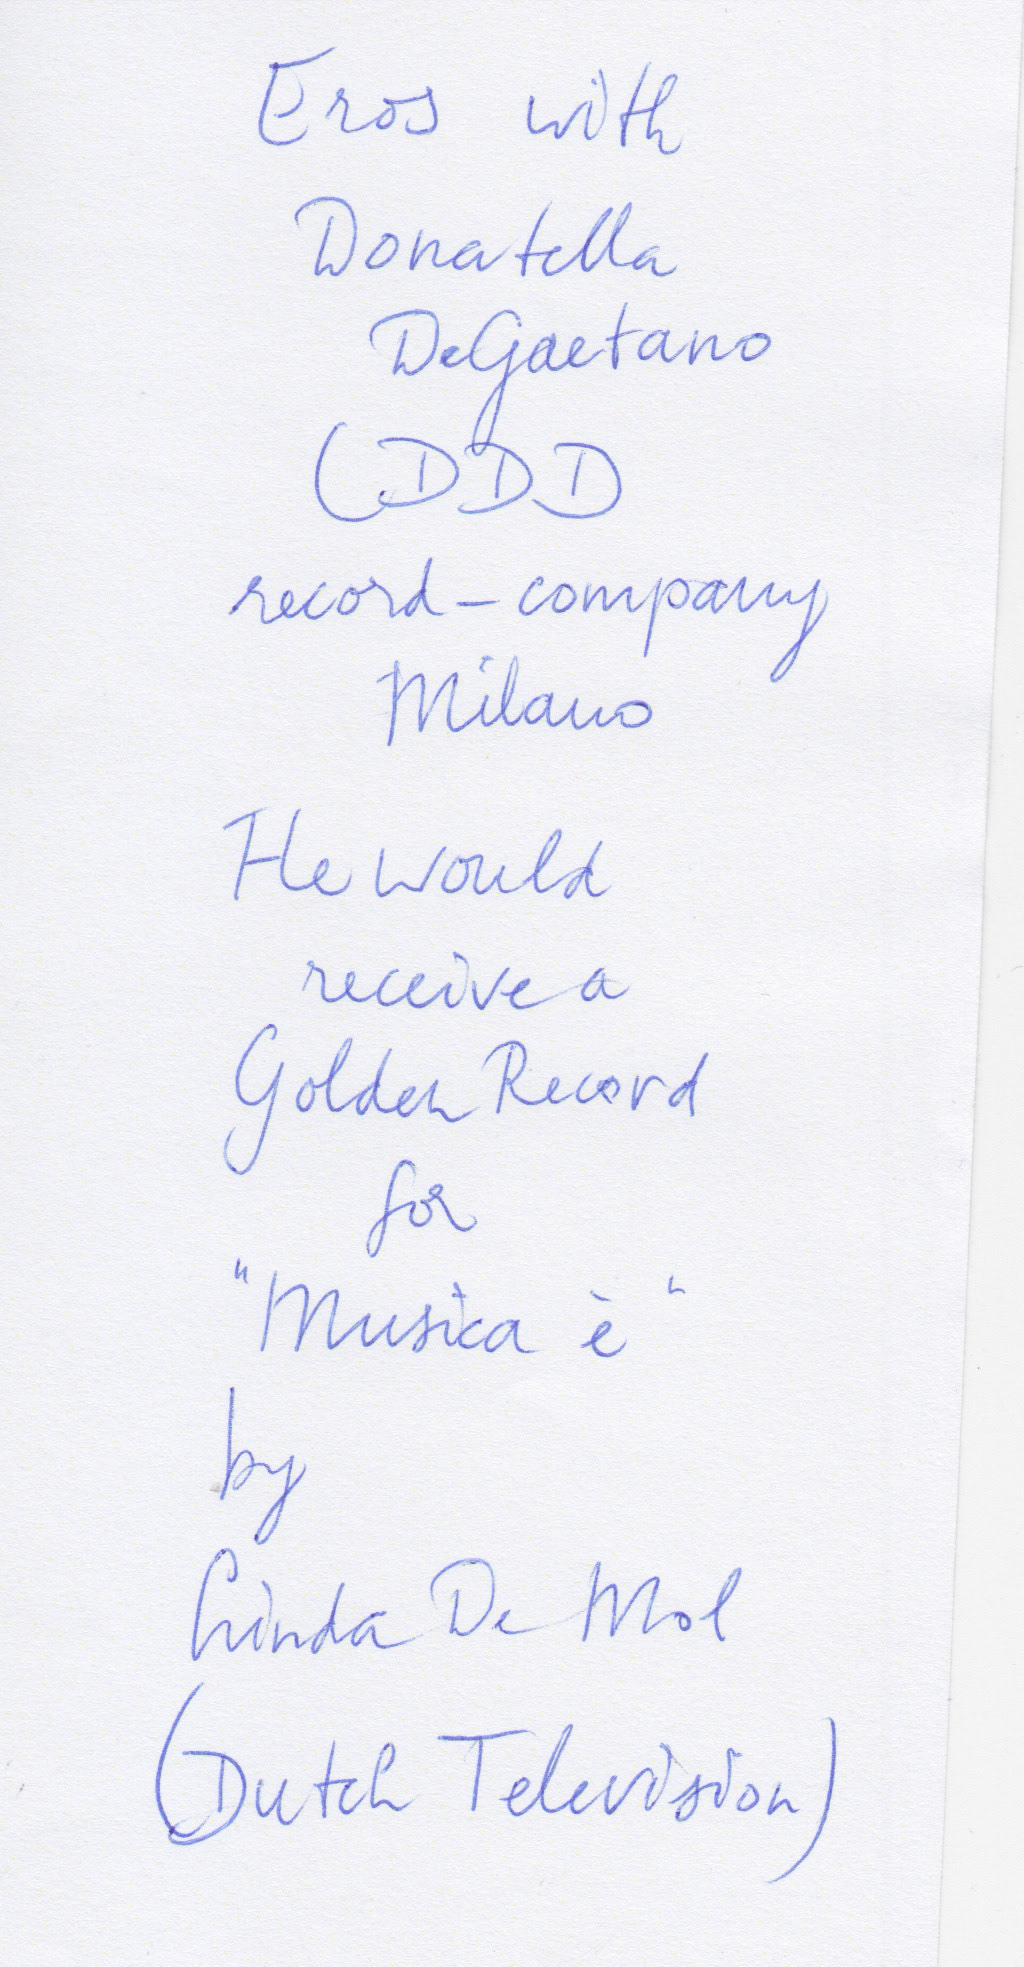 Eros with
Donatella
DeGaetano
(DDD
record-company
Milano
He would
receive a
Golden Record
for
"Musica è"
by
Linda De Mol
(Dutch Television)